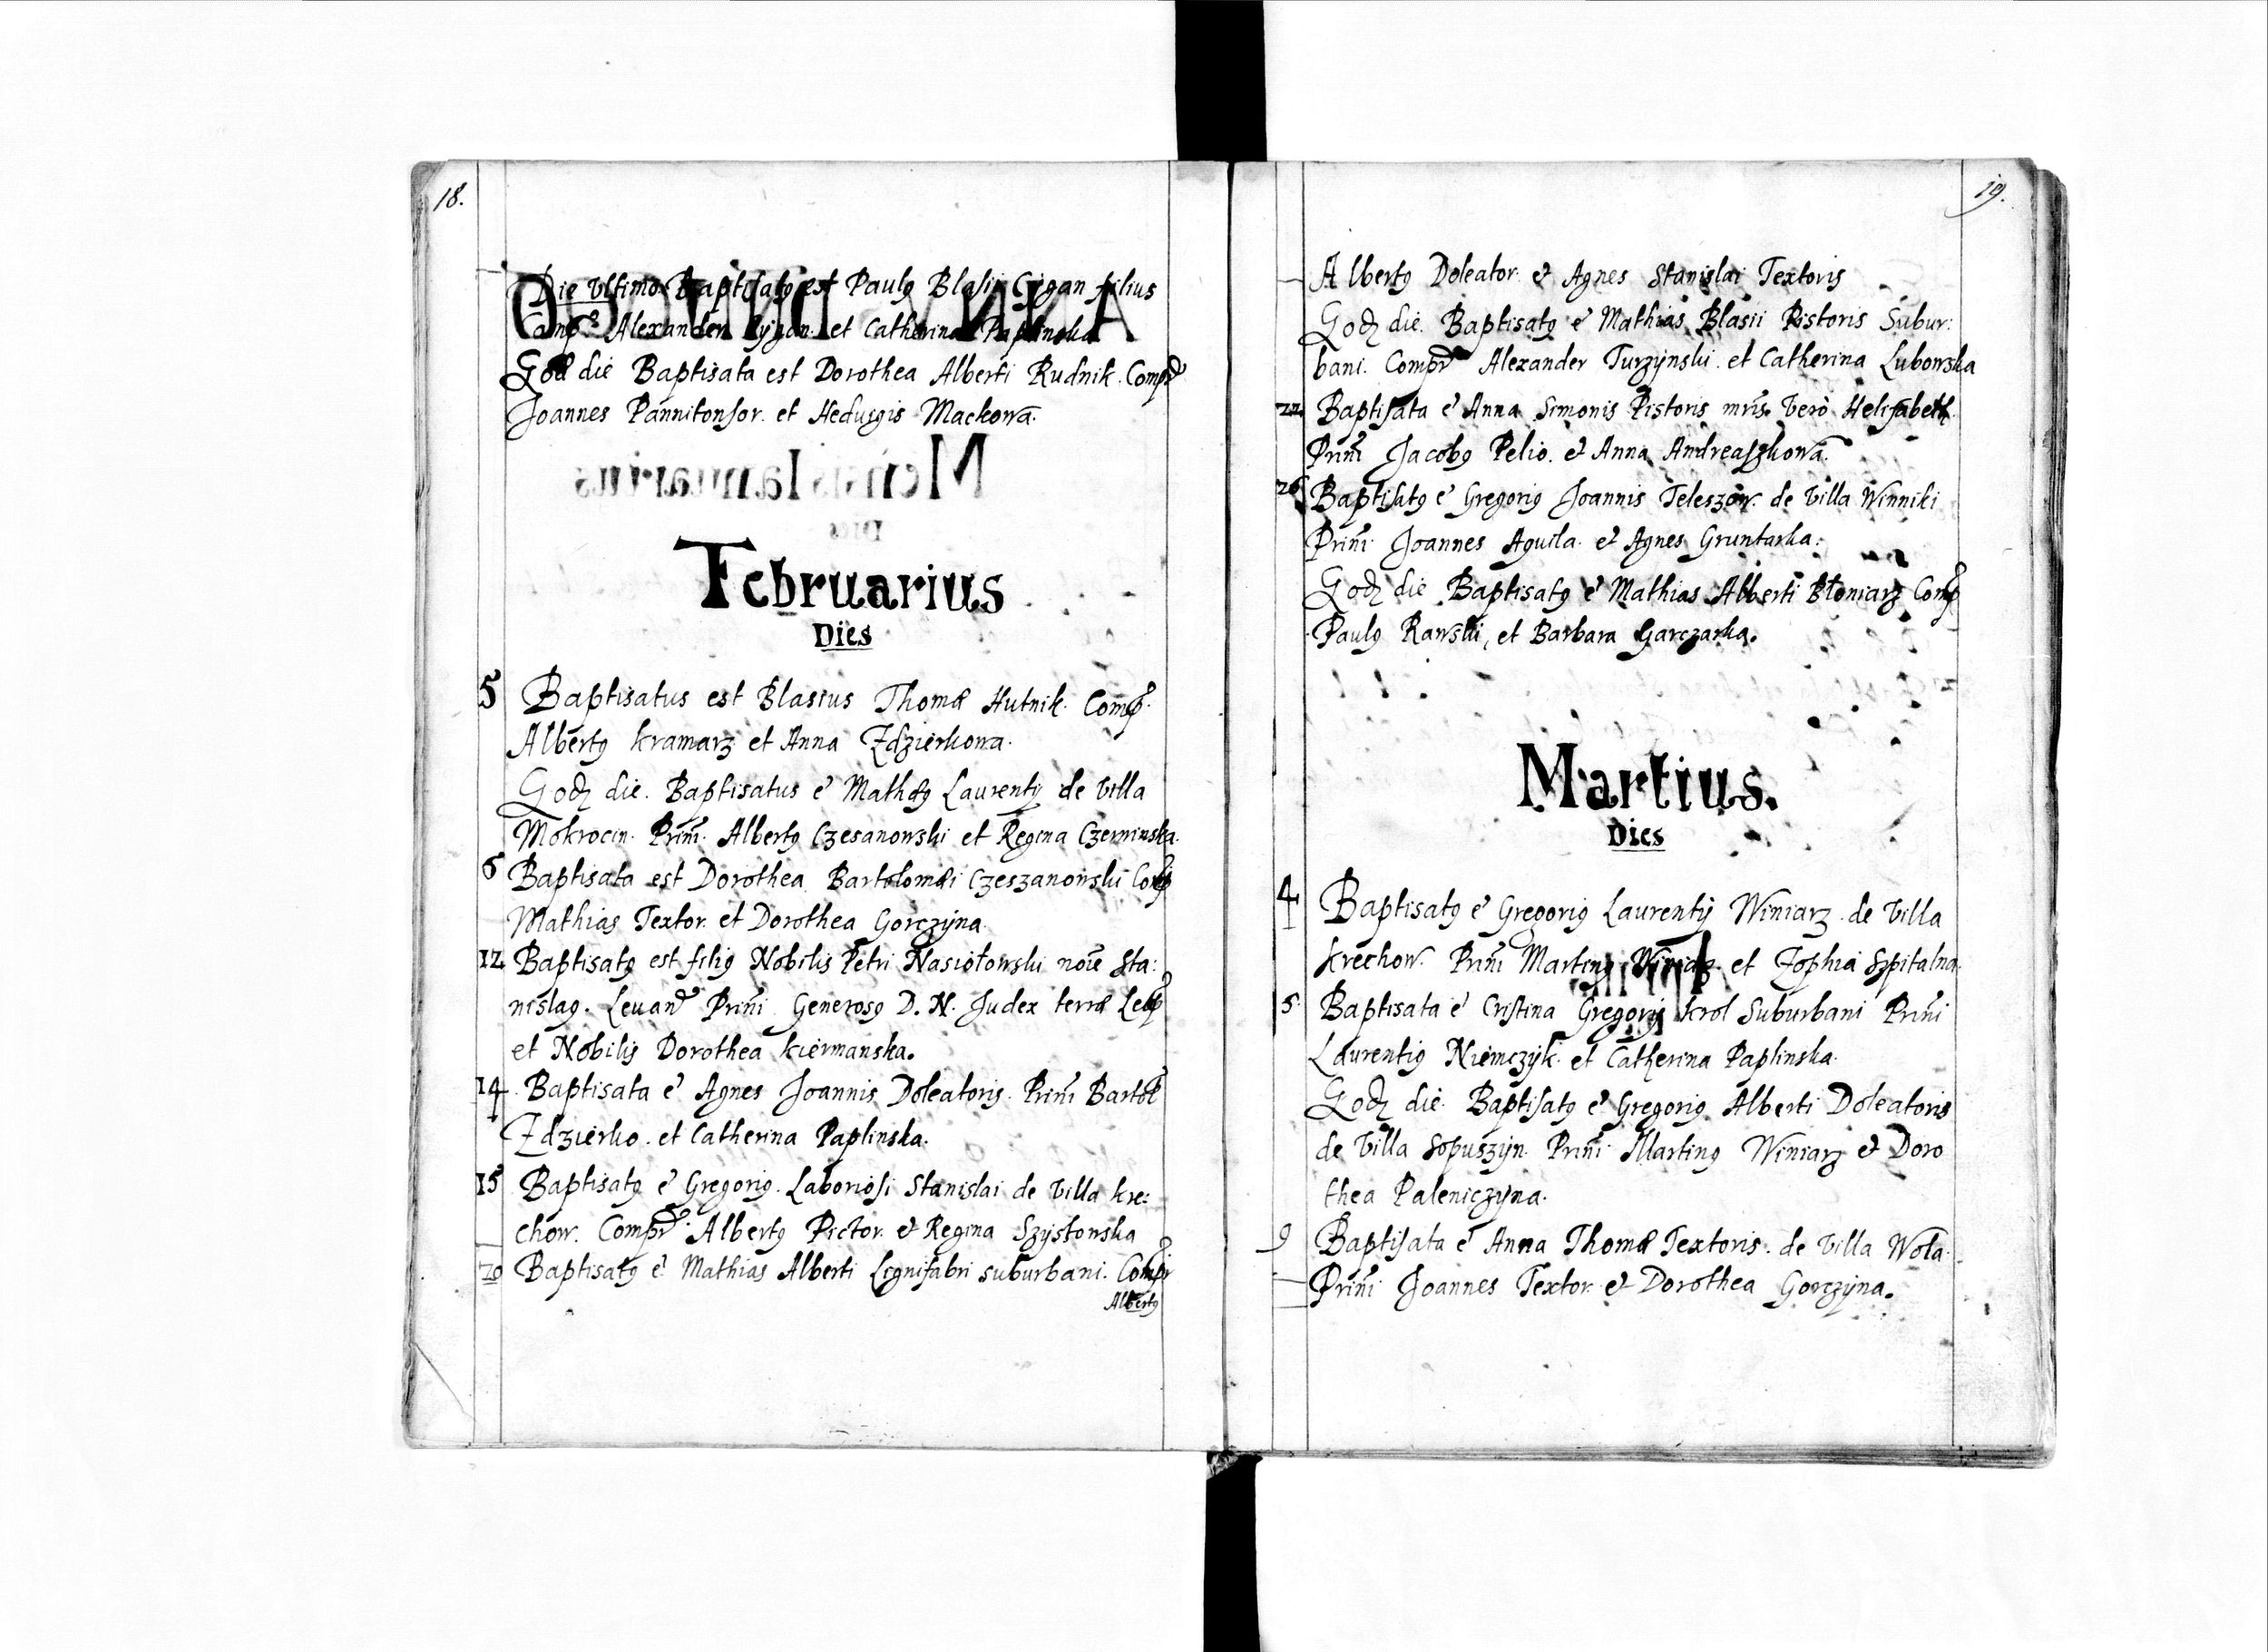 18.
Die Ultima Baptisatꝰ est Paulꝰ Blasii Cÿgan filius
Comp. Alexander Cÿgan. et Catherina Paplinska
Eod die Baptisata est Dorothea Alberti Rudnik. Compr
Joannes Pannitonsor. et Hedwgis Mackowa.
Februarius
Dies
5 Baptisatus est Blasius Thomæ Hutnik. Comp.
Albertꝰ Kramarz et Anna Zdzierkowa.
Eodꝫ die. Baptisatus ē Mathæꝰ Laurentij de Villa
Mokrocin. Prini. Albertꝰ Czesanowski et Regina Czerninska.
6 Baptisata est Dorothea Bartolomæi Czeszanowski Comp
Mathias Textor. et Dorothea Gorczÿna.
12 Baptisatꝰ est filiꝰ Nobilis Petri Nasiołowski noīe Sta:
nislaꝰ. Levand Prini Generosꝰ D. N. Judex terræ Leop
et Nobilis Dorothea Kiermanska.
14. Baptisata ē Agnes Joannis Doleatoris. Prini Bartol
Zdzierko. et Catherina Paplinska.
15 Baptisatꝰ ē Gregoriꝰ. Laboriosi Stanislai de Villa Kre:
chow. Compr Albertꝰ Pictor. et Regina Szÿstowska
20 Baptisatꝰ ē Mathias Alberti Lignifabri suburbani. Compr
Albertꝰ
19.
Albertꝰ Doleator. et Agnes Stanislai Textoris
Eodꝫ die. Baptisatꝰ ē Mathias Blasii Pistoris Subur:
bani. Compr Alexander Turzÿnski. et Catherina Lubowska
22 Baptisata ē Anna Simonis Pistoris mr̄is. Verò Helisabeth.
Prini Jacobꝰ Pelio. et Anna Andreaszkowa.
26 Baptisatꝰ ē Gregoriꝰ Joannis Teleszow. de Villa Winniki
Prini Joannes Aquila. et Agnes Gruntarka.
Eodꝫ die Baptisatꝰ ē Mathias Alberti Błoniarz Comp
Paulꝰ Rawski, et Barbara Garczarka.
Martius.
Dies
4 Baptisatꝰ ē Gregoriꝰ Laurentÿ Winiarz. de Villa
Krechow. Prini Martinꝰ Winiarz. et Zophia Szpitalna.
5. Baptisata ē Cristina Gregorij Krol Suburbani Prini
Laurentiꝰ Niemczÿk. et Catherina Paplinska.
Eodꝫ die. Baptisatꝰ ē Gregoriꝰ Alberti Doleatoris
de Villa Sopuszÿn. Prini Martinꝰ Winiarz et Doro
thea Paleniczÿna.
9 Baptisata ē Anna Thomæ Textoris. de Villa Wola.
Prini Joannes Textor. et Dorothea Gorczÿna.